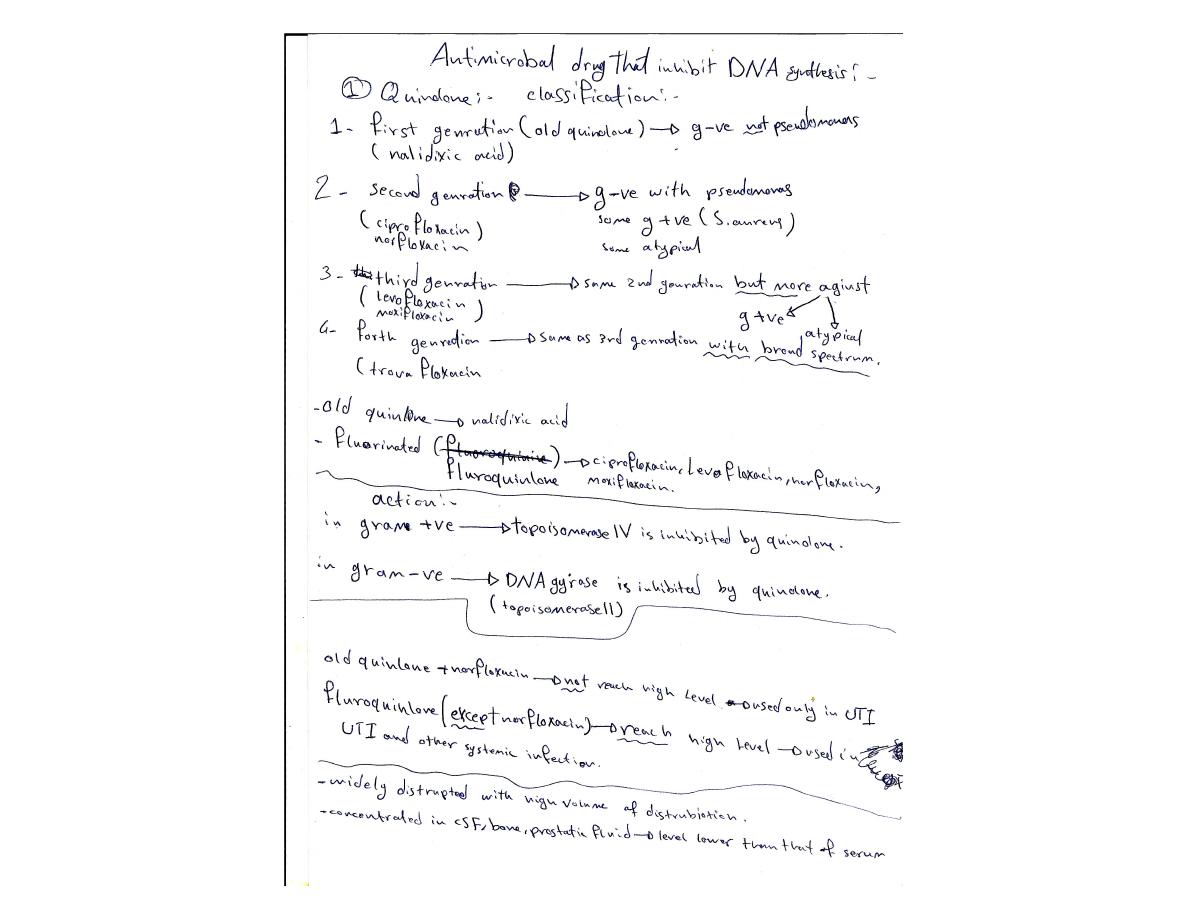 Antimicrobal drug That inhibit DNA synthesis:-
① Quinolone:- classification:-
1- first genrution (old quinolone) → g-ve not pseudomonas
(nalidixic acid)
2- second genration → g-ve with pseudomonas
(ciprofloxacin) some g+ve (S.aureus)
norfloxacin some atypical
3- third genration → same 2nd genration but more aginst
(levofloxacin)
moxifloxacin g+ve atypical
4- forth genration → same as 3rd genration with broad spectrum.
(trovafloxacin
-old quinlone → nalidixic acid
- fluorinated (fluroquinlone) → ciprofloxacin, Levofloxacin, norfloxacin,
moxifloxacin.
action:-
in gram +ve → topoisomerase IV is inhibited by quinolone.
in gram-ve → DNA gyrase is inhibited by quinolone.
(topoisomerase II)
old quinlone + norfloxacin → not reach high Level → used only in UTI
fluroquinlove (except norfloxacin) → reach high Level → used in
UTI and other systemic infection.
-widely distrupted with high volume of distrubiotion.
-concentrated in CSF, bone, prostatic fluid → level lower than that of serum